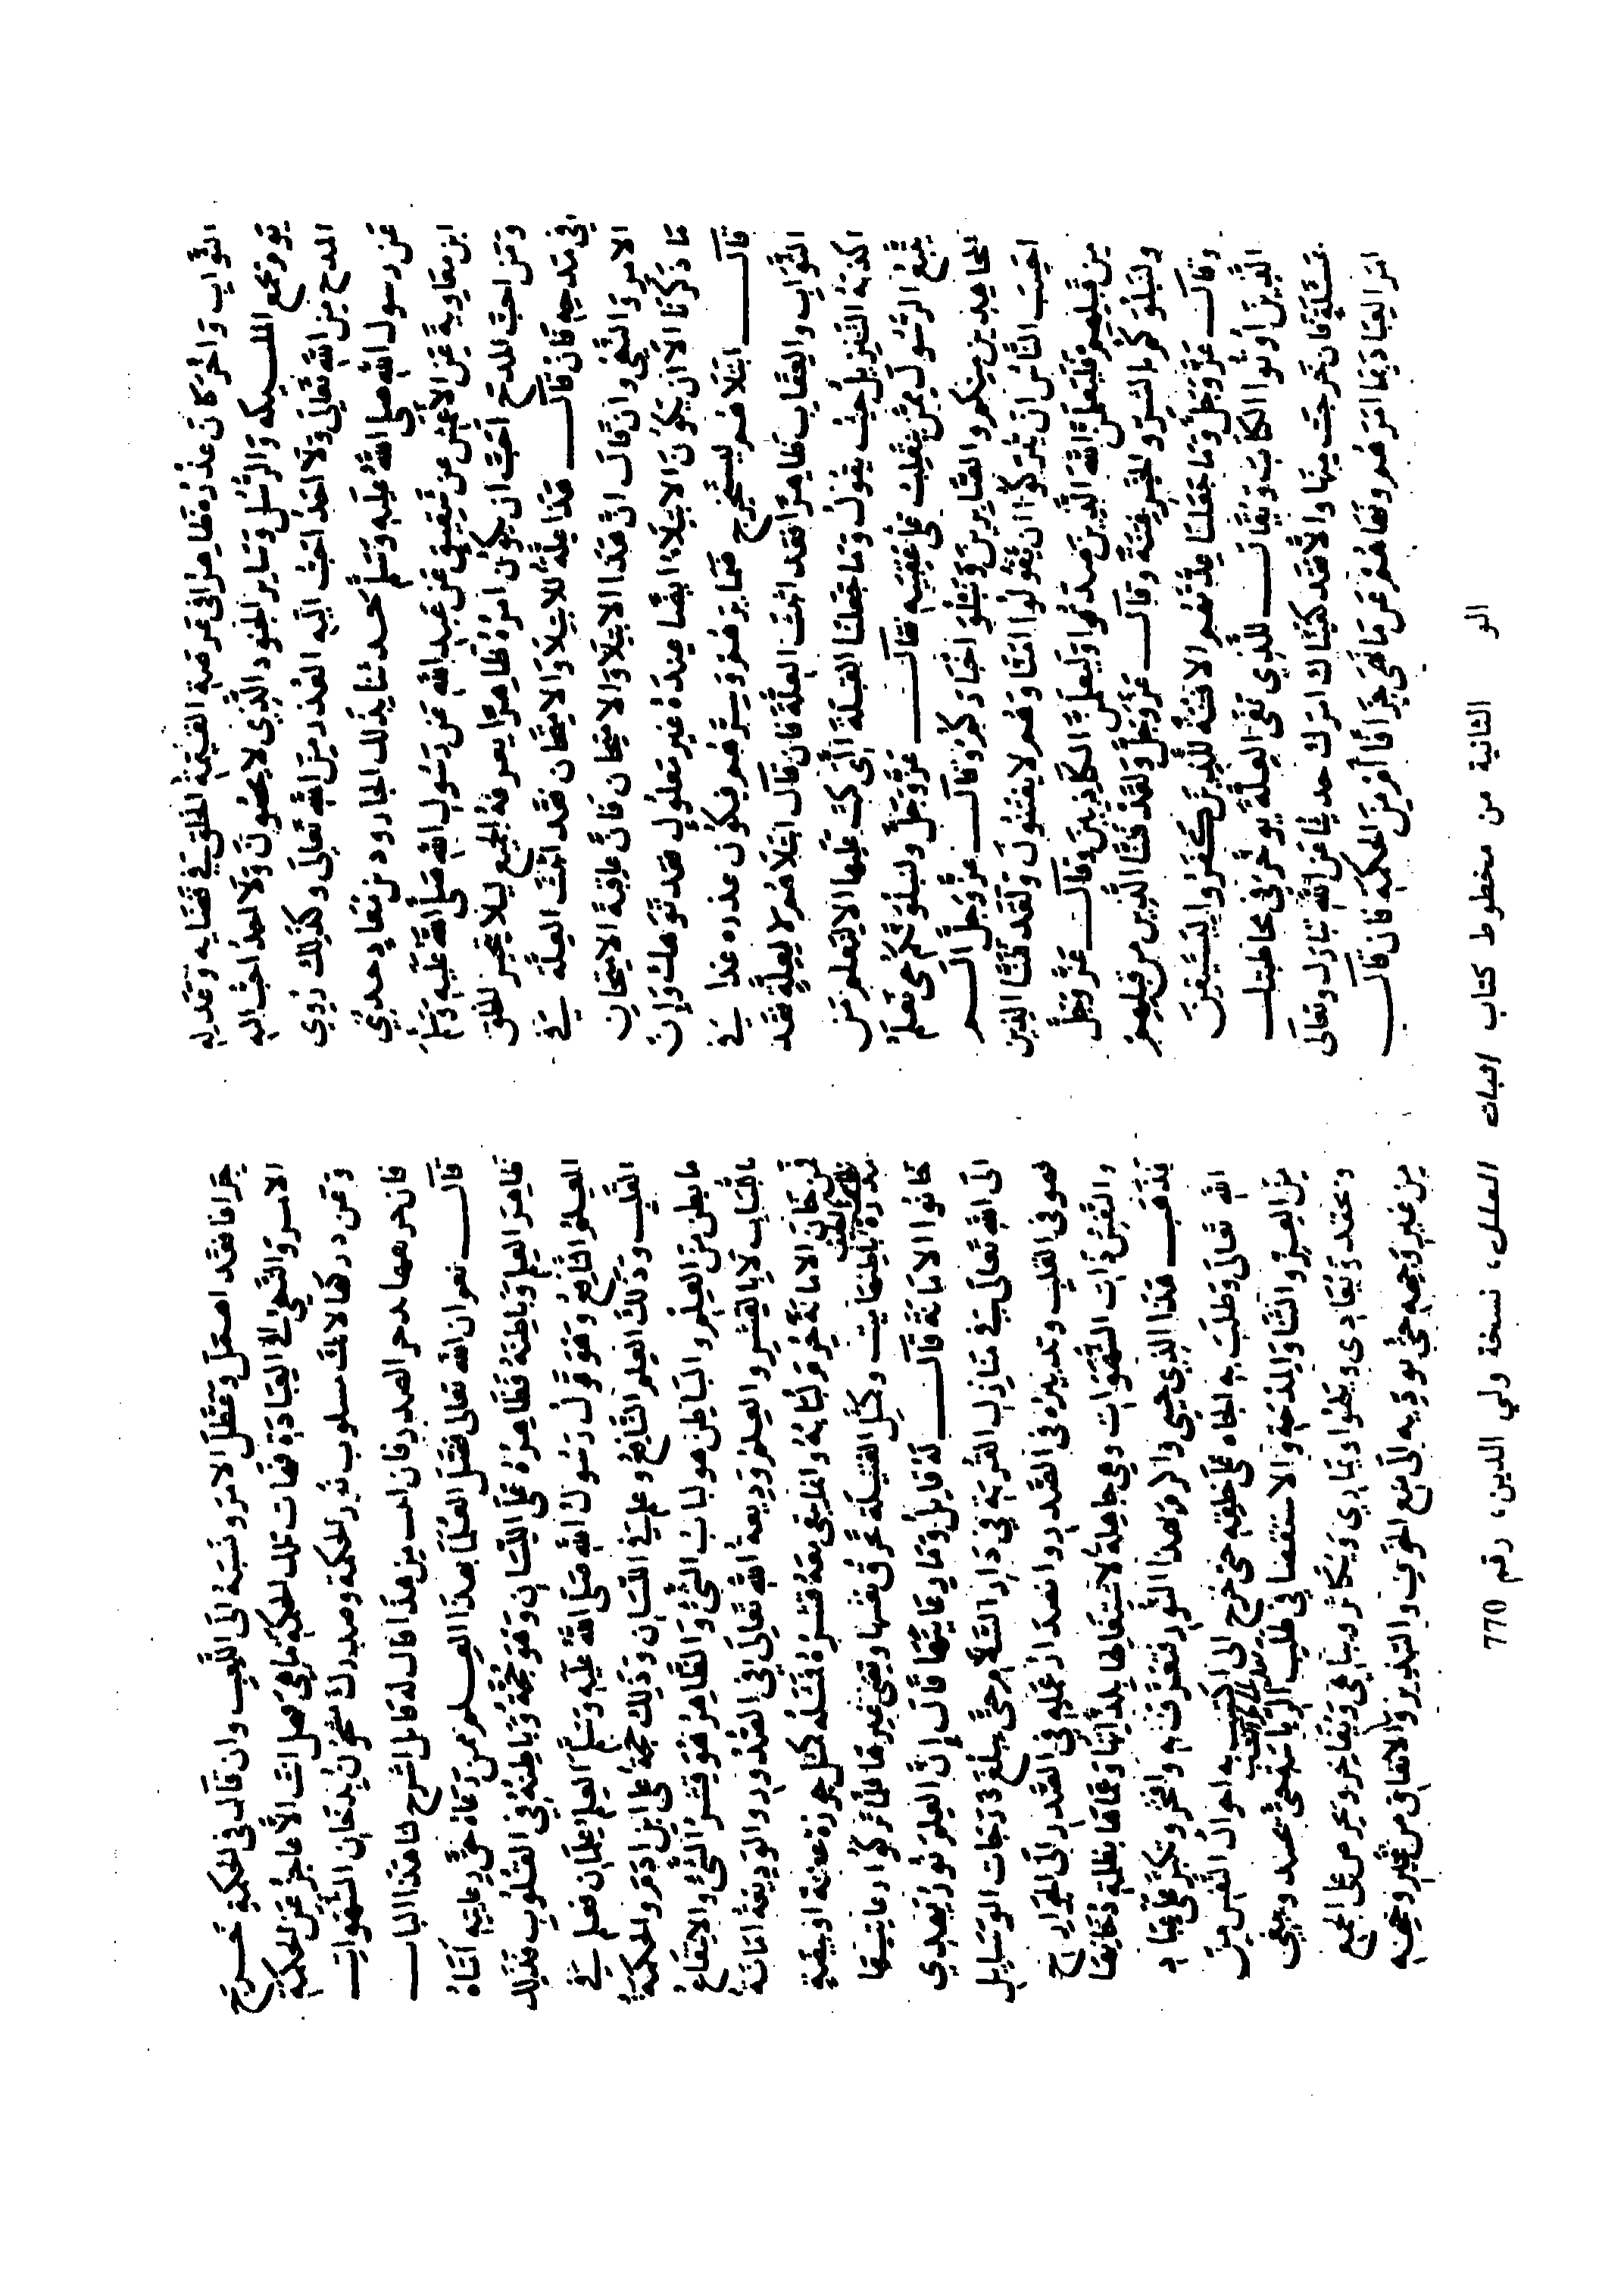 الثواب واخر كان عذره ظاهرا في عرصة القيمة للخلق في قضايه وعدله
يوم يجمع الملسكه والرسل وساير الجنود الذي لا يحصون ولا احد احب اليه
المدح من الله تعالى ولا احد احب اليه العذر من الله تعالى وكذلك روي
عن رسول الله صلى الله عليه وسلم حدثنا بذلك الجارود بن معاذ حدثني
ابن معاوية عن الاعمش عن شقيق عن عبد الله عن رسول الله صلى الله عليه وسلم
ومن احب المدح احب ان يكون امره ظاهرا يعرفه الجميع ليلا يتحير الخلق
في مدحه فان قال هذا علة للابتلا والامتحان فقد اثبت العلة في
الامر والنهى وان قال ان هذا الابتلا والامتحان فان عاقبة الامتحان
ما ذكرنا الا ان يكون الابتلاء ايضا عنده غير معلول فقد توهمك وان
قال ابتلاهم ليستخرج ضمايرهم وسترهم فيكون عذره غدا في
الثواب والعقاب ظاهرا فقد اثبت العلة فان قال ابتلاهم لا لعلة فقد
اكذبه التنزيل حيث يقول وما جعلنا القبلة التي كنت عليها الا لنعلم من
يتبع الرسول ممن ينقلب على عقبيه فقال عز وجل ولنبلونكم حتى نعلم
المجاهدين منكم والصابرين ونبلو اخباركم وقال عز وجل الم
احسب الناس ان يتركوا ان يقولوا امنا وهم لا يفتنون ولقد فتنا الذين
من قبلهم فليعلمن الله الذين صدقوا وليعلمن الكاذبين وقال عز وجل
ولنبلوكم بالشر والخير فتنة وقال عز وجل ولقد فتنا الذين من قبلهم
وقال عز وجل وما جعلنا عدتهم الا فتنة للذين كفروا ليستيقن
الذين اوتوا الكتاب ويقال للذي نفى العلة يوخر في مخاطبتك
بمسئلة فان خرجت منها والا فقد كفيناك امرك حدثنا عن الله تبارك وتعالى
امر العباد بما امرهم ونهاهم عن ما نهى جزافا ام من الحكمة فان قال
جزافا فقد اهمل وعطل الامر ونسبه الى اللعب وان قال في الحكمة خرج
الامر والنهى الى العبادة فهات تلك الحكمة ما هي هل انت الا عاجز عن الحكمة
وعن دركها لانك مسلوب نور الحكمة وصدرك مشحون بدخان الشهوات
فان حرهما صدر الصدر فان اب من هذا قال له قايل اشرح لنا هذا الباب
قال نعم ان الله تعالى فضل العلما بهذا العلم ممن رعاه حق رعايته اتاه
ظاهر العلم وباطنه فظاهره على اللسان وهو حجة وباطنه في القلوب فذلك
العلم النافع وهو قول رسول الله صلى الله عليه وسلم العلم علمان فعلم في
القلب وذلك العلم النافع وعلم في اللسان وذلك حجة على ابن ادم والحكمة
ما بطن من العلم والباطن هو لباب الشي والظاهر هو قشر الشي والانتفاع
باللباب لا بالقشر والعلم وديعة الله تعالى في الصدور والوديعة امانة
فمن خان الامانة حرم لبابه والما بقي معه قشره فمثله كمثل جوزة عفنة او بيضة
مذرة باطنها ميت وكمثل الفتيلة تحرق نفسها وتضيء غيرها فلما تركوا رعايتها
خانوا الامانة قال له قايل وما رعايتها قال ان العلم نور يهدي
الى الله تعالى في منازل القربة في دار السلام حتى يبلغ درجات الوسايل
فهو في القلب وتدبيره في الصدر واصدار عمله في الصدر الى الجوارح
والنفس ذات الشهوات وهي جاهلة لاشتغالها بلذاتها وعماها بظلمة دخانها
يذهب هذا الذي حيي والا وهذا النور تعزز به وافتخر وتكبر على عباد
الله تعالى وطلب به الجاه على خلقه حتى خرج الى اكتسب به احوال النفس من
من العز والثنا والمدحة والاستقصا في طلب الرياسة حتى يحسد ويبغي
ويحقد ويعادي ويماري ويكاثر ويباهي ويفاخر ويحرص على الجمع
من غير وجهه حتى يوديه الى منع الحق والتبذير والانفاق من غير وجهه
الو الثانية من مخطوط كتاب اثبات العلل، نسخة ولي الدين، رقم 770